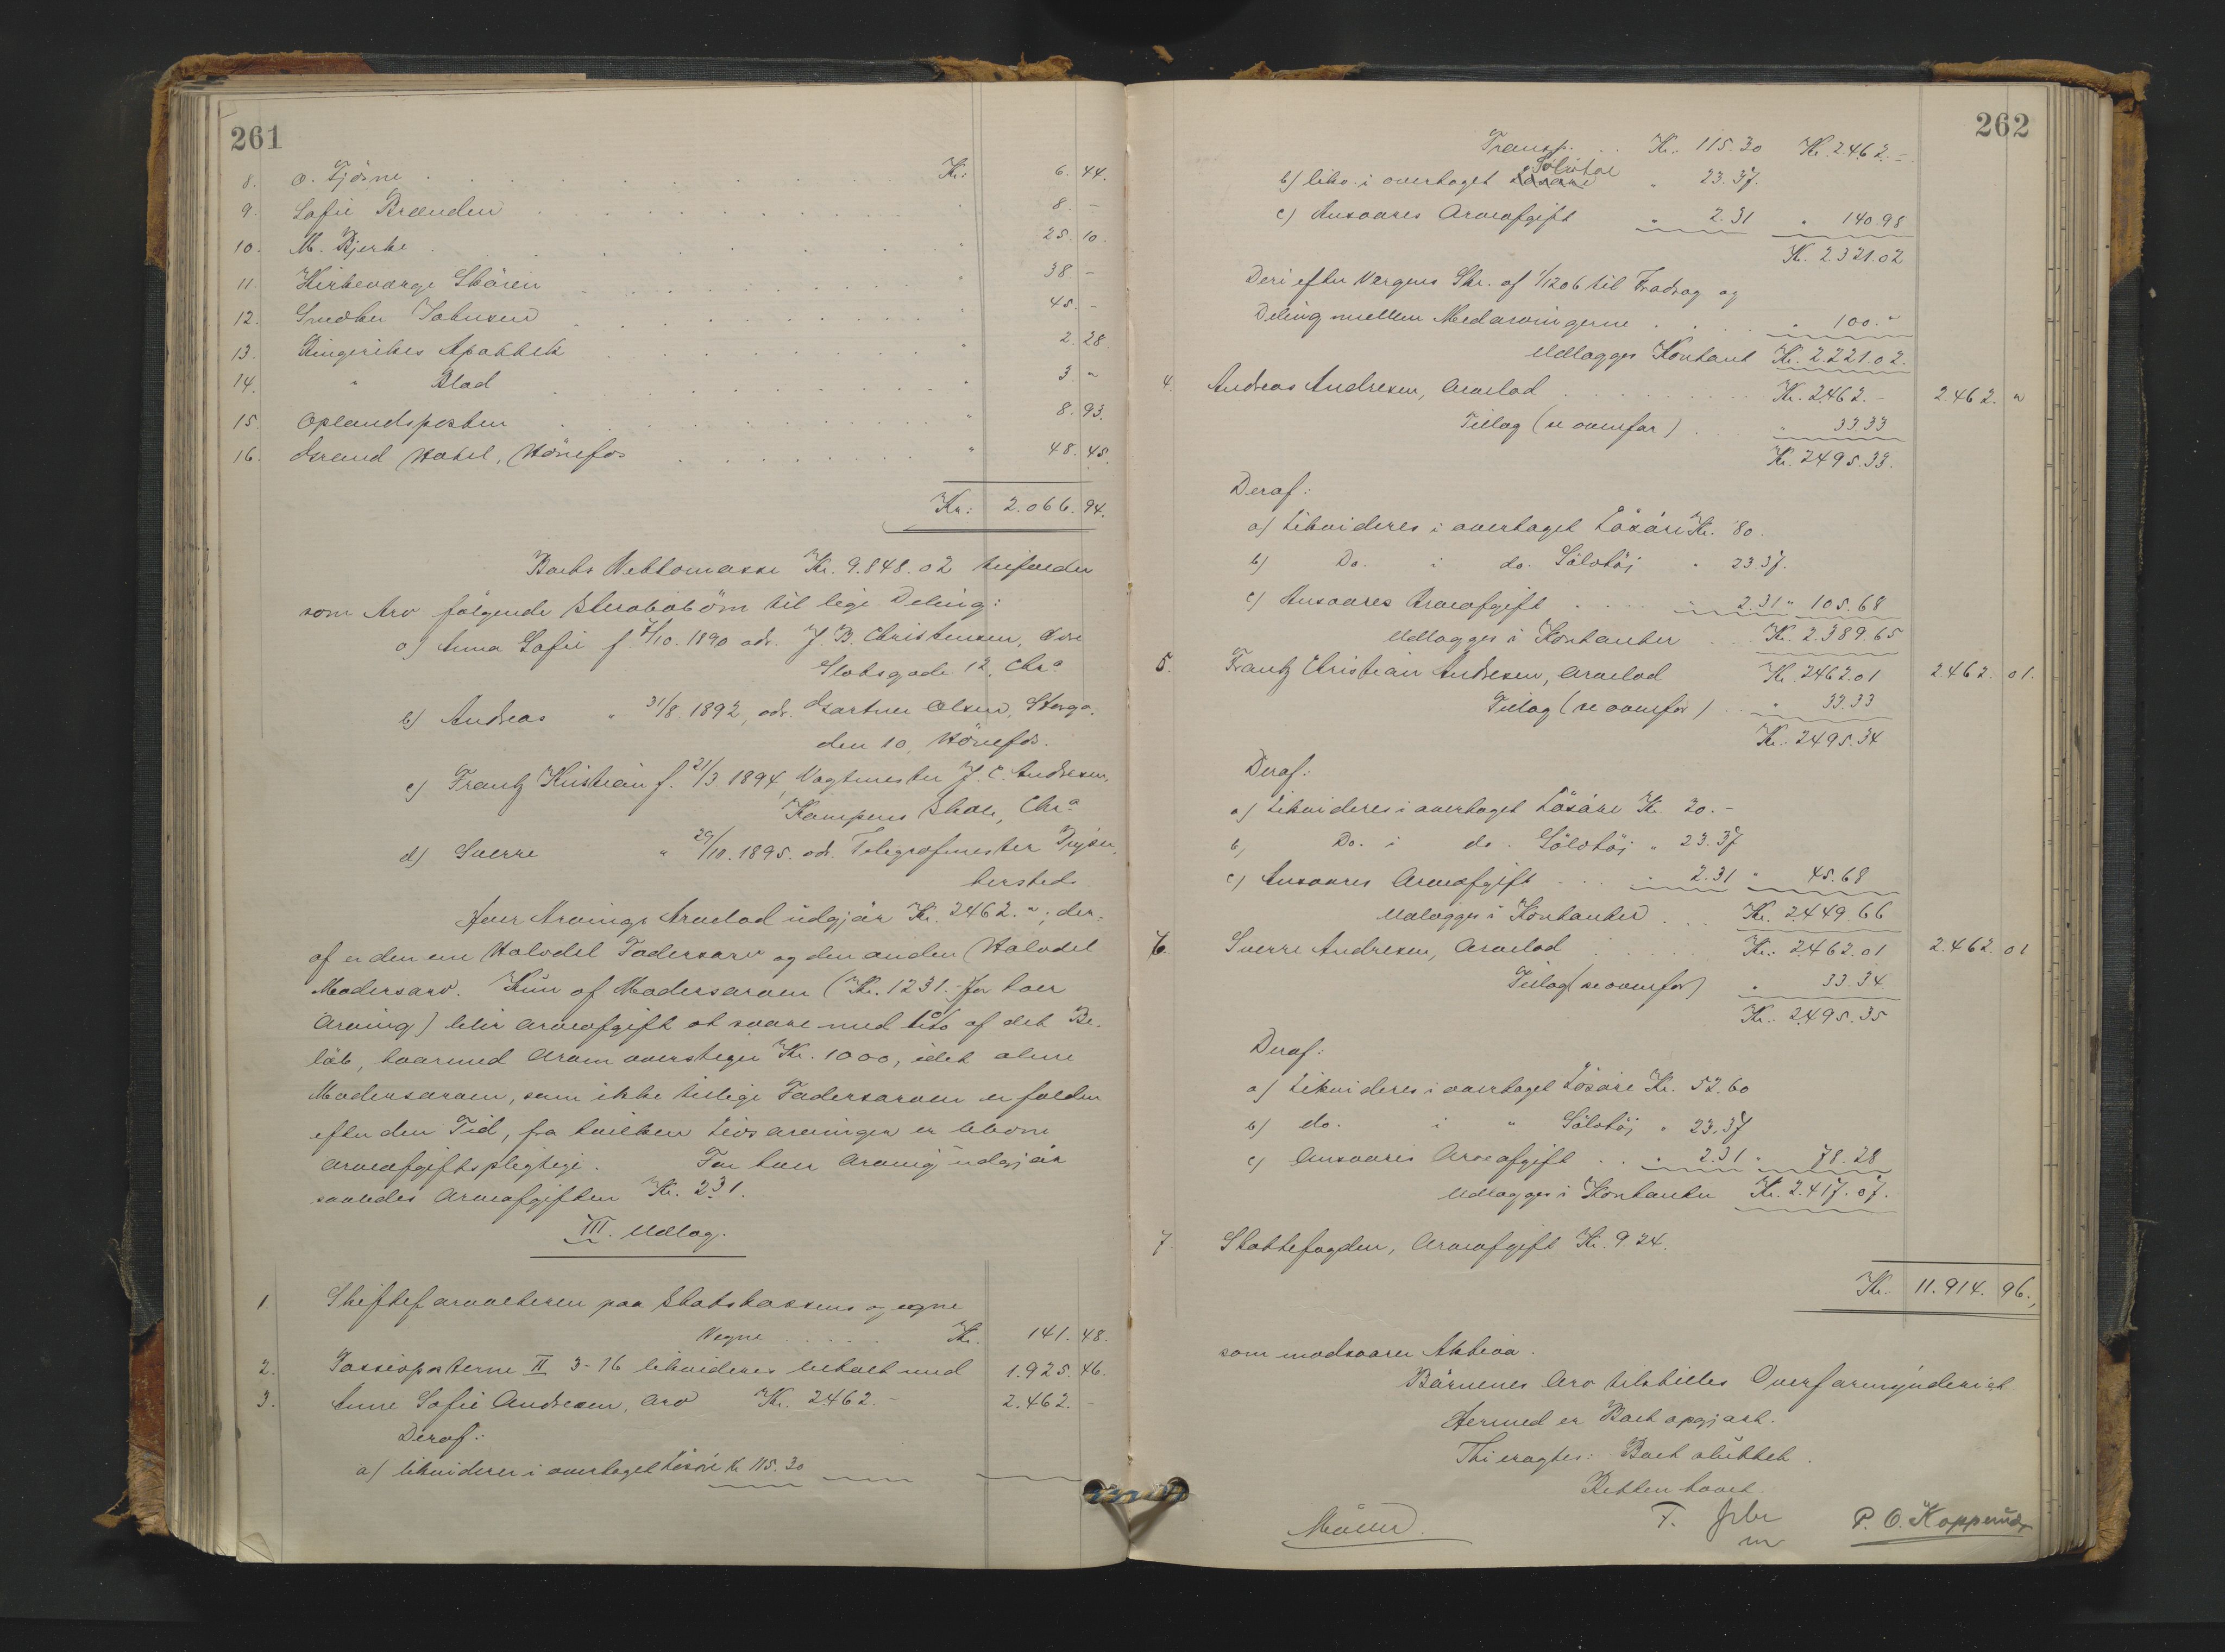 261
8. O. Tjörne . . . Kr: 6. 44.
9. Sofie Brænden . . . " 8. –
10. M. Bjerke . . . " 25. 10.
11. Kirkeværge Skören . . . " 38 –
12. Snedker Johnsen . . . " 45. –
13. Ringerikes Apothek . . . " 2. 28.
14. " Blad . . . " 3. "
15. Oplandsposten . . . " 8. 93.
16. Grand Hotel, Hönefos . . . " 48. 45.
Kr: 2.066. 94.
Boets Nettomasse Kr. 9.848.02 tilfalder
som Arv fölgende Skrobobörn til lige Deling:
a) Anna Sofie f. 7/10. 1890 adr. J. B. Christensen, Övre
Slotsgade 12, Chr.a
b) Andreas " 31/8. 1892, adr. Gartner Olsen, Storga-
den 10, Hönefos.
c) Frantz Kristian f. 21/3 1894, Vagtmester J. C. Andresen,
Kampens Skole, Chr.a
d) Sverre " 29/10. 1895. adr. Telegrafmester
hersteds
Hver Arvings Arvelod udgjör Kr. 2462. "; der-
af er den ene Halvdel Fadersarv og den anden Halvdel
Modersarv. Kun af Modersarven (Kr. 1231.– for hver
Arving) blir Arveafgift at svare med 1% af det Be-
löb, hvormed Arven overstiger Kr. 1000, idet alene
Modersarven, som ikke tillige Fadersarven er falden
efter den Tid, fra hvilken Livsarvinger er blevne
arveafgiftspligtige. For hver Arving udgjör
saaledes Arveafgiften Kr. 2.31.
III. Udlæg.
1. Skifteforvalteren paa Statskassens og egne
Vegne . . . . . Kr. 141. 48.
2. Passivposterne II 3-16 likvideres betalt med 1.925. 46.
3. Anne Sofie Andresen, Arv Kr. 2462.– 2.462. –
Deraf:
a) likviderer i overtaget Lösöre Kr 115.30
262
Transp. . . Kr. 115.30 Kr. 2462.–
b) likv. i overtaget Sölvtöi " 23.37.
c) Ansvares Arveafgift " 2.31 " 140.98
Kr. 2.321.02
Deri efter Vergens Skr. af 1/12 06 til Fradrag og
Deling mellem Medarvingerne . . . " 100."
Udlægges Kontant Kr. 2.221.02.
4. Andreas Andresen, Arvelod . . . Kr. 2462.– 2.462. "
Tillæg (se ovenfor) . " 33.33
Kr. 2495.33.
Deraf:
a) Likvideres i overtaget Lösöre Kr. 80.
b) Do. i do. Sölvtöi " 23.37.
c) Ansvares Arveafgift . . . " 2.31 " 105.68
Udlægges i Kontanter . . Kr. 2.389.65
5. Frantz Christian Andresen, Arvelod Kr. 2462.01 2462. 01.
Tillæg (se ovenfor) . . " 33.33
Kr. 2495.34
Deraf:
a) Likvideres i overtaget Lösöre Kr 20.–
b) Do. i do. Sölvtöi " 23.37
c) Ansvares Arveafgift . . . " 2.31 " 45.68
Udlægges i Kontanter . . Kr. 2.449.66
6. Sverre Andresen, Arvelod . . . Kr. 2.462.01 2.462. 01
Tillæg (se ovenfor) " 33.34
Kr. 2495.35
Deraf:
a) Likvideres i overtaget Lösöre Kr. 52.60
b) do. i " Sölvtöi " 23.37
c) Ansvares Arveafgift . . " 2.31 " 78.28
Udlægges i Kontanter Kr. 2.417.07.
7. Skattefogden, Arveafgift Kr. 9.24.
Kr. 11.914. 96.
som modsvarer Aktiva.
Börnenes Arv tilstilles Overformynderiet
Hermed er Boet opgjort.
Thi eragtes: Boet sluttet.
Retten hævet.
P. O. Koppenud